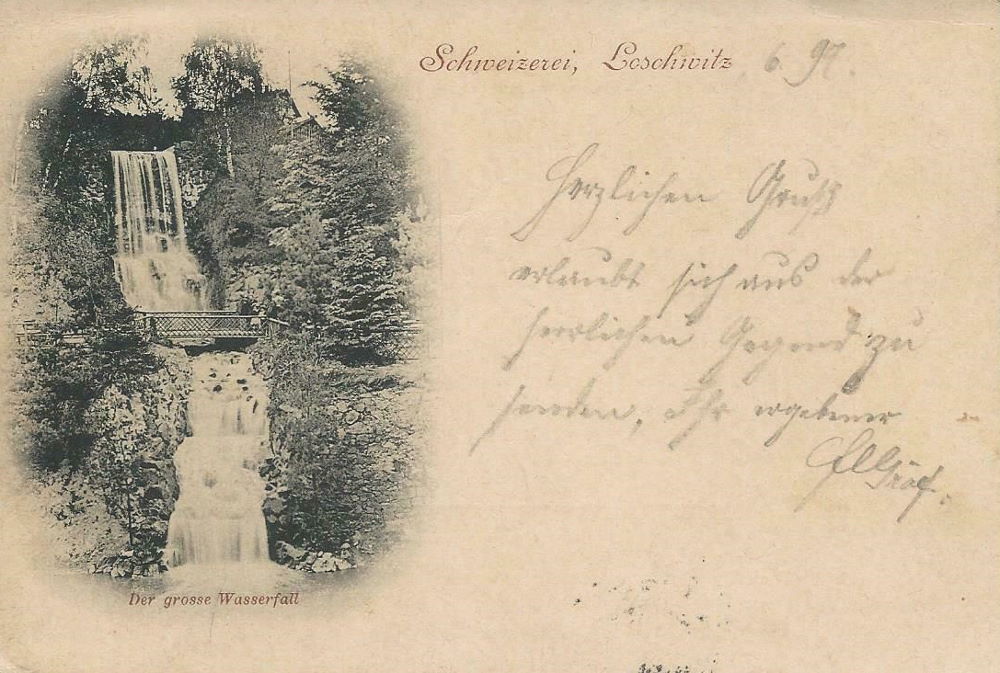 Schweizerei, Loschwitz 6. 97.
Herzlichen Gruß
erlaubt sich aus der
herrlichen Gegend zu
senden, Ihr ergebener
Gräf.
Der grosse Wasserfall